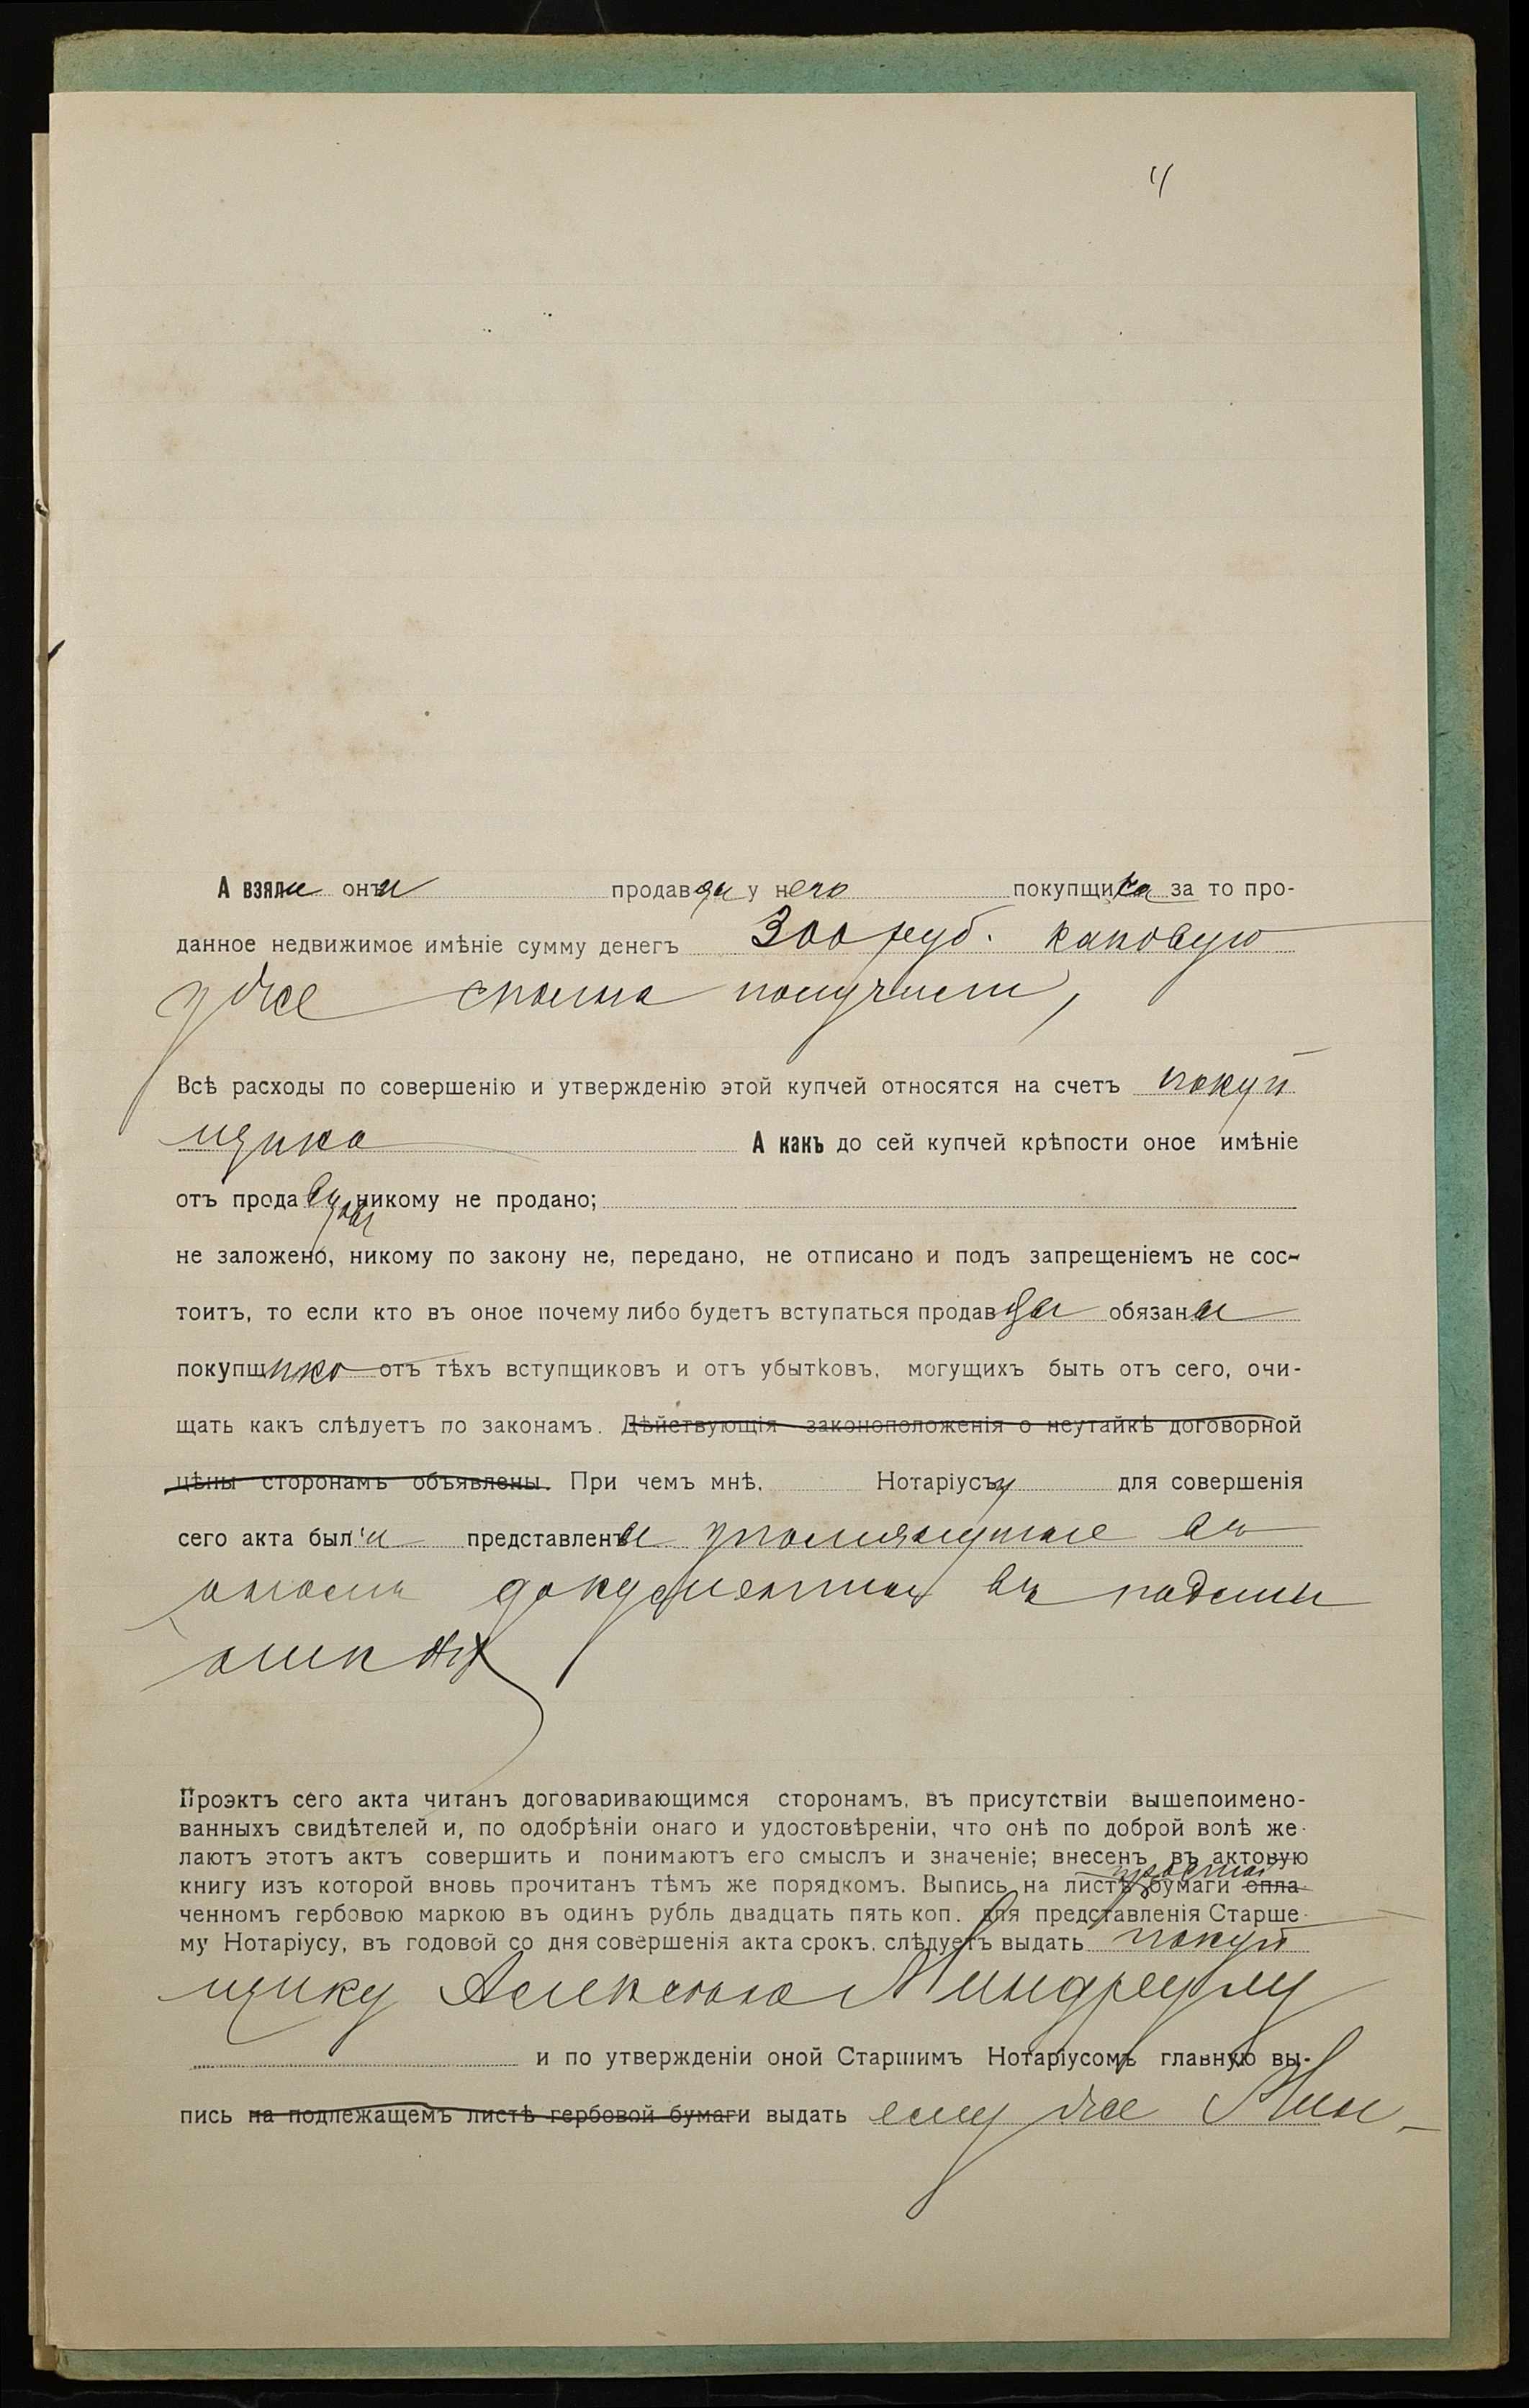 4
А взяли они продавцы у него покупщика за то про-
данное недвижимое имѣніе сумму денегъ 300 руб. каковую
уже сполна получили,
Всѣ расходы по совершенію и утвержденію этой купчей относятся на счетъ покуп
щика А какъ до сей купчей крѣпости оное имѣніе
отъ продавцовъ никому не продано;
не заложено, никому по закону не, передано, не отписано и подъ запрещеніемъ не сос-
тоитъ, то если кто въ оное почему либо будетъ вступаться продавцы обязаны
покупщика отъ тѣхъ вступщиковъ и отъ убытковъ, могущихъ быть отъ сего, очи-
щать какъ слѣдуетъ по законамъ. Дѣйствующія законоположенія о неутайкѣ договорной
цѣны сторонамъ объявлены. При чемъ мнѣ, Нотаріусу для совершенія
сего акта были представлены упомянутые въ
ономъ документы въ подлин
никѣ
Проэктъ сего акта читанъ договаривающимся сторонамъ, въ присутствіи вышепоимено-
ванныхъ свидѣтелей и, по одобрѣніи онаго и удостовѣреніи, что онѣ по доброй волѣ же-
лаютъ этотъ актъ совершить и понимаютъ его смыслъ и значеніе; внесенъ въ актовую
книгу изъ которой вновь прочитанъ тѣмъ же порядкомъ. Выпись на листѣ простой бумаги опла-
ченномъ гербовою маркою въ одинъ рубль двадцать пять коп. для представленія Старше-
му Нотаріусу, въ годовой со дня совершенія акта срокъ, слѣдуетъ выдать покуп
щику
и по утвержденіи оной Старшимъ Нотаріусомъ главную вы-
пись на подлежащемъ листѣ гербовой бумаги выдать ему же Мин-